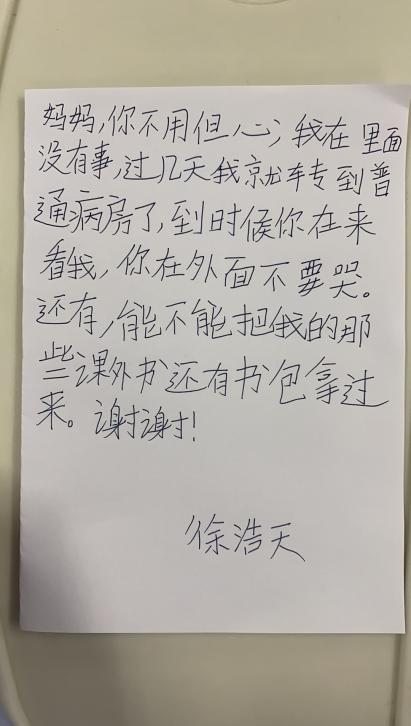 妈妈,你不用但心;我在里面
没有事,过几天我就转到普
通病房了,到时候你在来
看我,你在外面不要哭。
还有,能不能把我的那
些课外书还有书包拿过
来。谢谢!
徐浩天